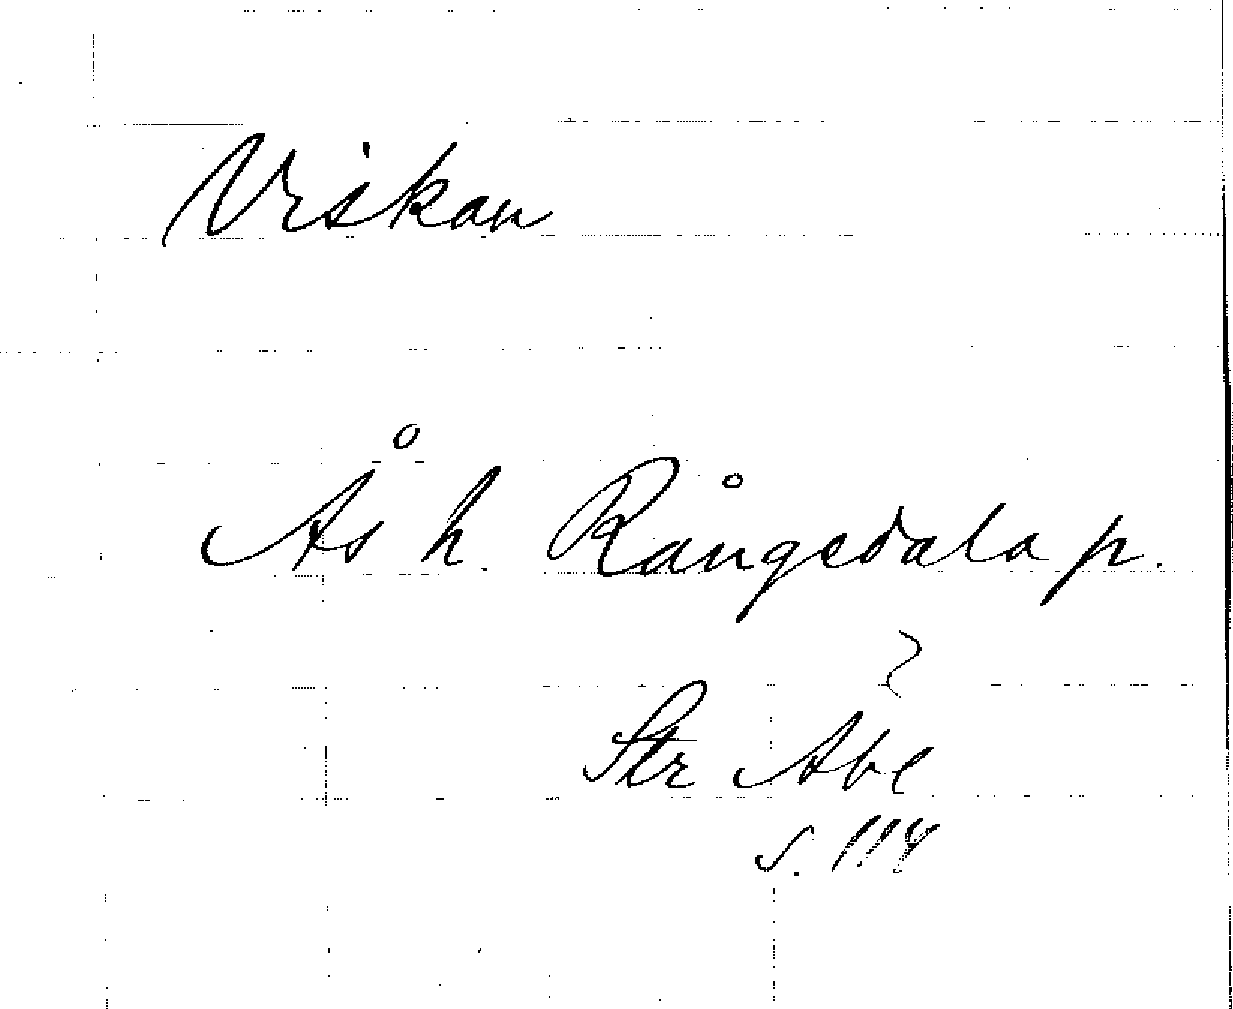 Viskan
Ås h. Rångedala p.
Str Abl
s. 114